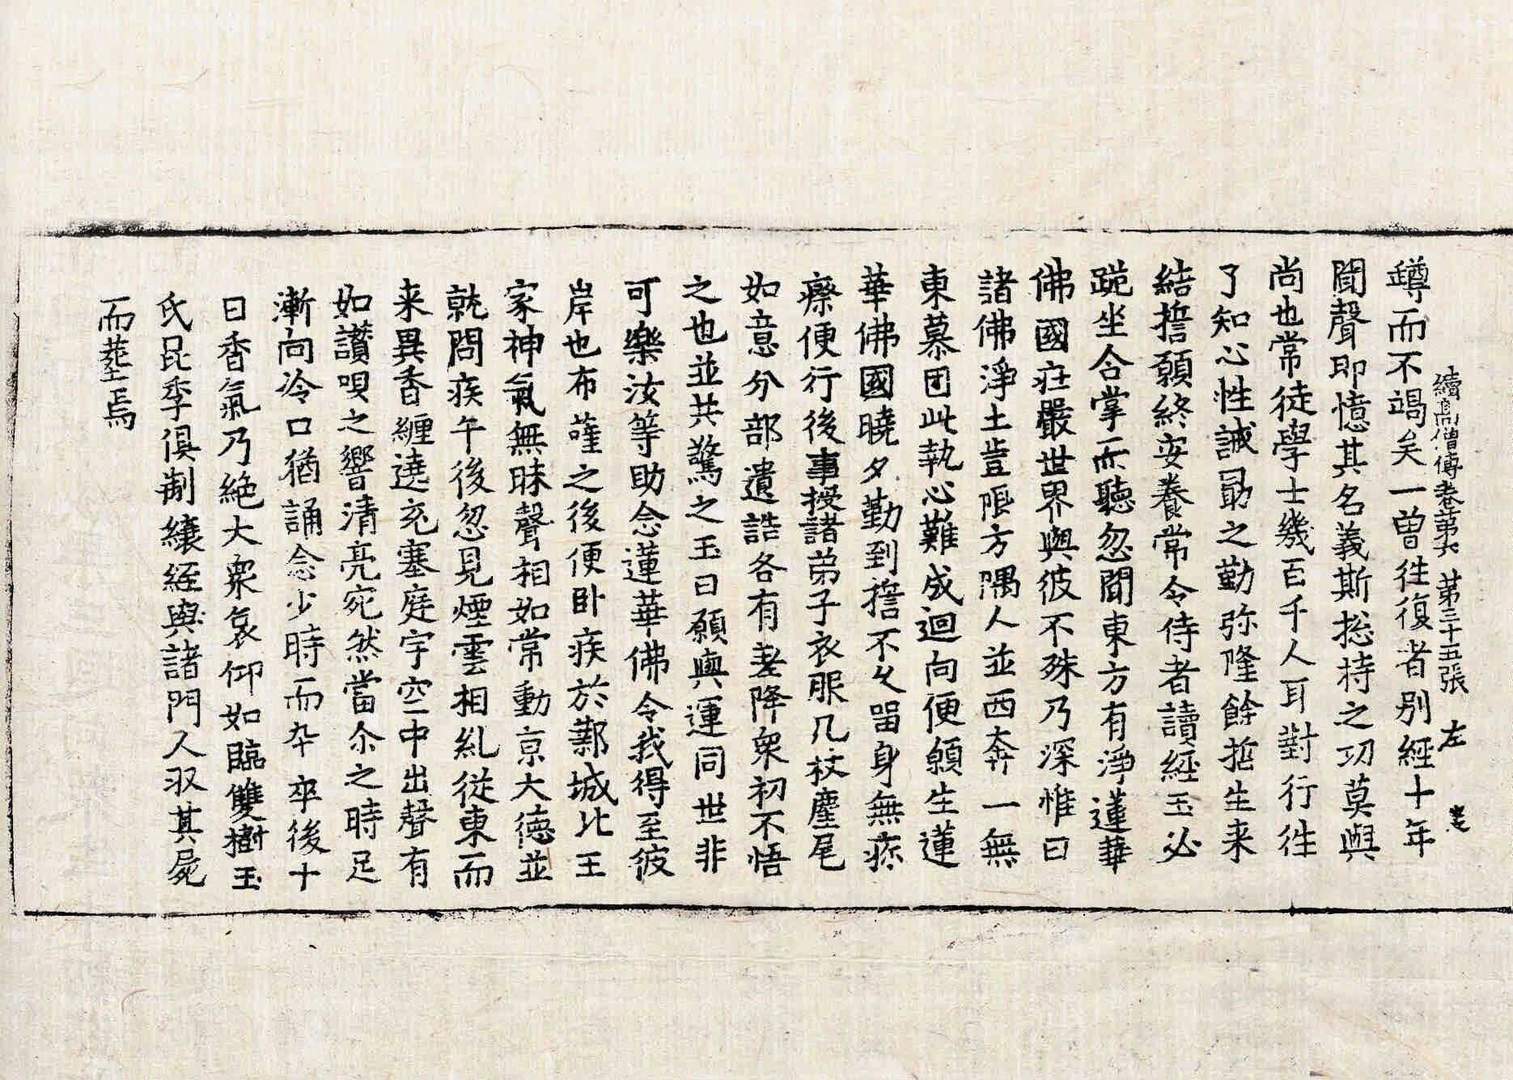 續高僧傳卷第六 第三十五張 左
罇而不竭矣一曾往復者別經十年
聞聲即憶其名義斯捴持之功莫與
尚也常徒學士幾百千人耳對行往
了知心性誡勗之勤弥隆餘哲生来
結誓願終安養常令侍者讀經玉必
跪坐合掌而聽忽聞東方有淨蓮華
佛國莊嚴世界與彼不殊乃深惟曰
諸佛淨土豈限方隅人並西奔一無
東慕因此執心難成迴向便願生蓮
華佛國曉夕勤到誓不久留身無疹
瘵便行後事授諸弟子衣服几杖麈尾
如意分部遺誥各有差降衆初不悟
之也並共驚之玉曰願與運同世非
可樂汝等助念蓮華佛令我得至彼
岸也布薩之後便卧疾於鄴城北王
家神氣無昧聲相如常動京大德並
就問疾午後忽見煙雲相糺從東而
来異香纏遶充塞庭宇空中出聲有
如讃唄之響清亮宛然當尒之時足
漸向冷口猶誦念少時而卒卒後十
日香氣乃絶大衆哀仰如臨雙樹玉
氏昆季俱制縗絰與諸門人収其屍
而塟焉